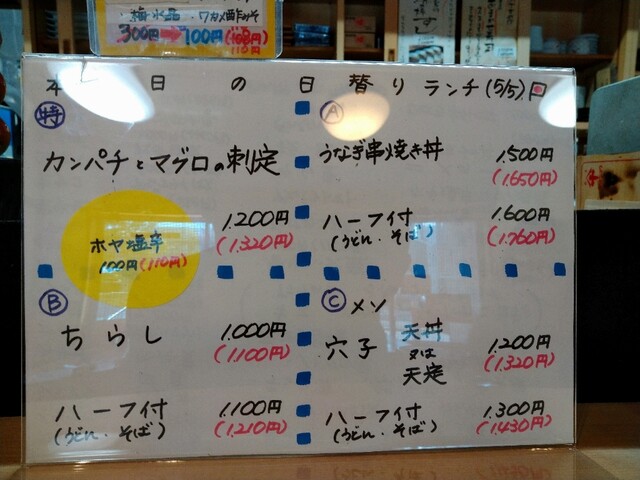 梅水晶・ワカメ酢みそ
300円→100円(110円)
本日の日替りランチ(5/5)
特
カンパチとマグロの刺定
1.200円
(1.320円)
ホヤ塩辛
100円(110円)
A
うなぎ串焼き丼
1.500円
(1.650円)
ハーフイ付
(うどん・そば)
1.600円
(1.760円)
B
ちらし
1.000円
(1.100円)
ハーフイ付
(うどん・そば)
1.100円
(1.210円)
C メソ
穴子 天丼
又は
天定
1.200円
(1.320円)
ハーフイ付
(うどん・そば)
1.300円
(1.430円)